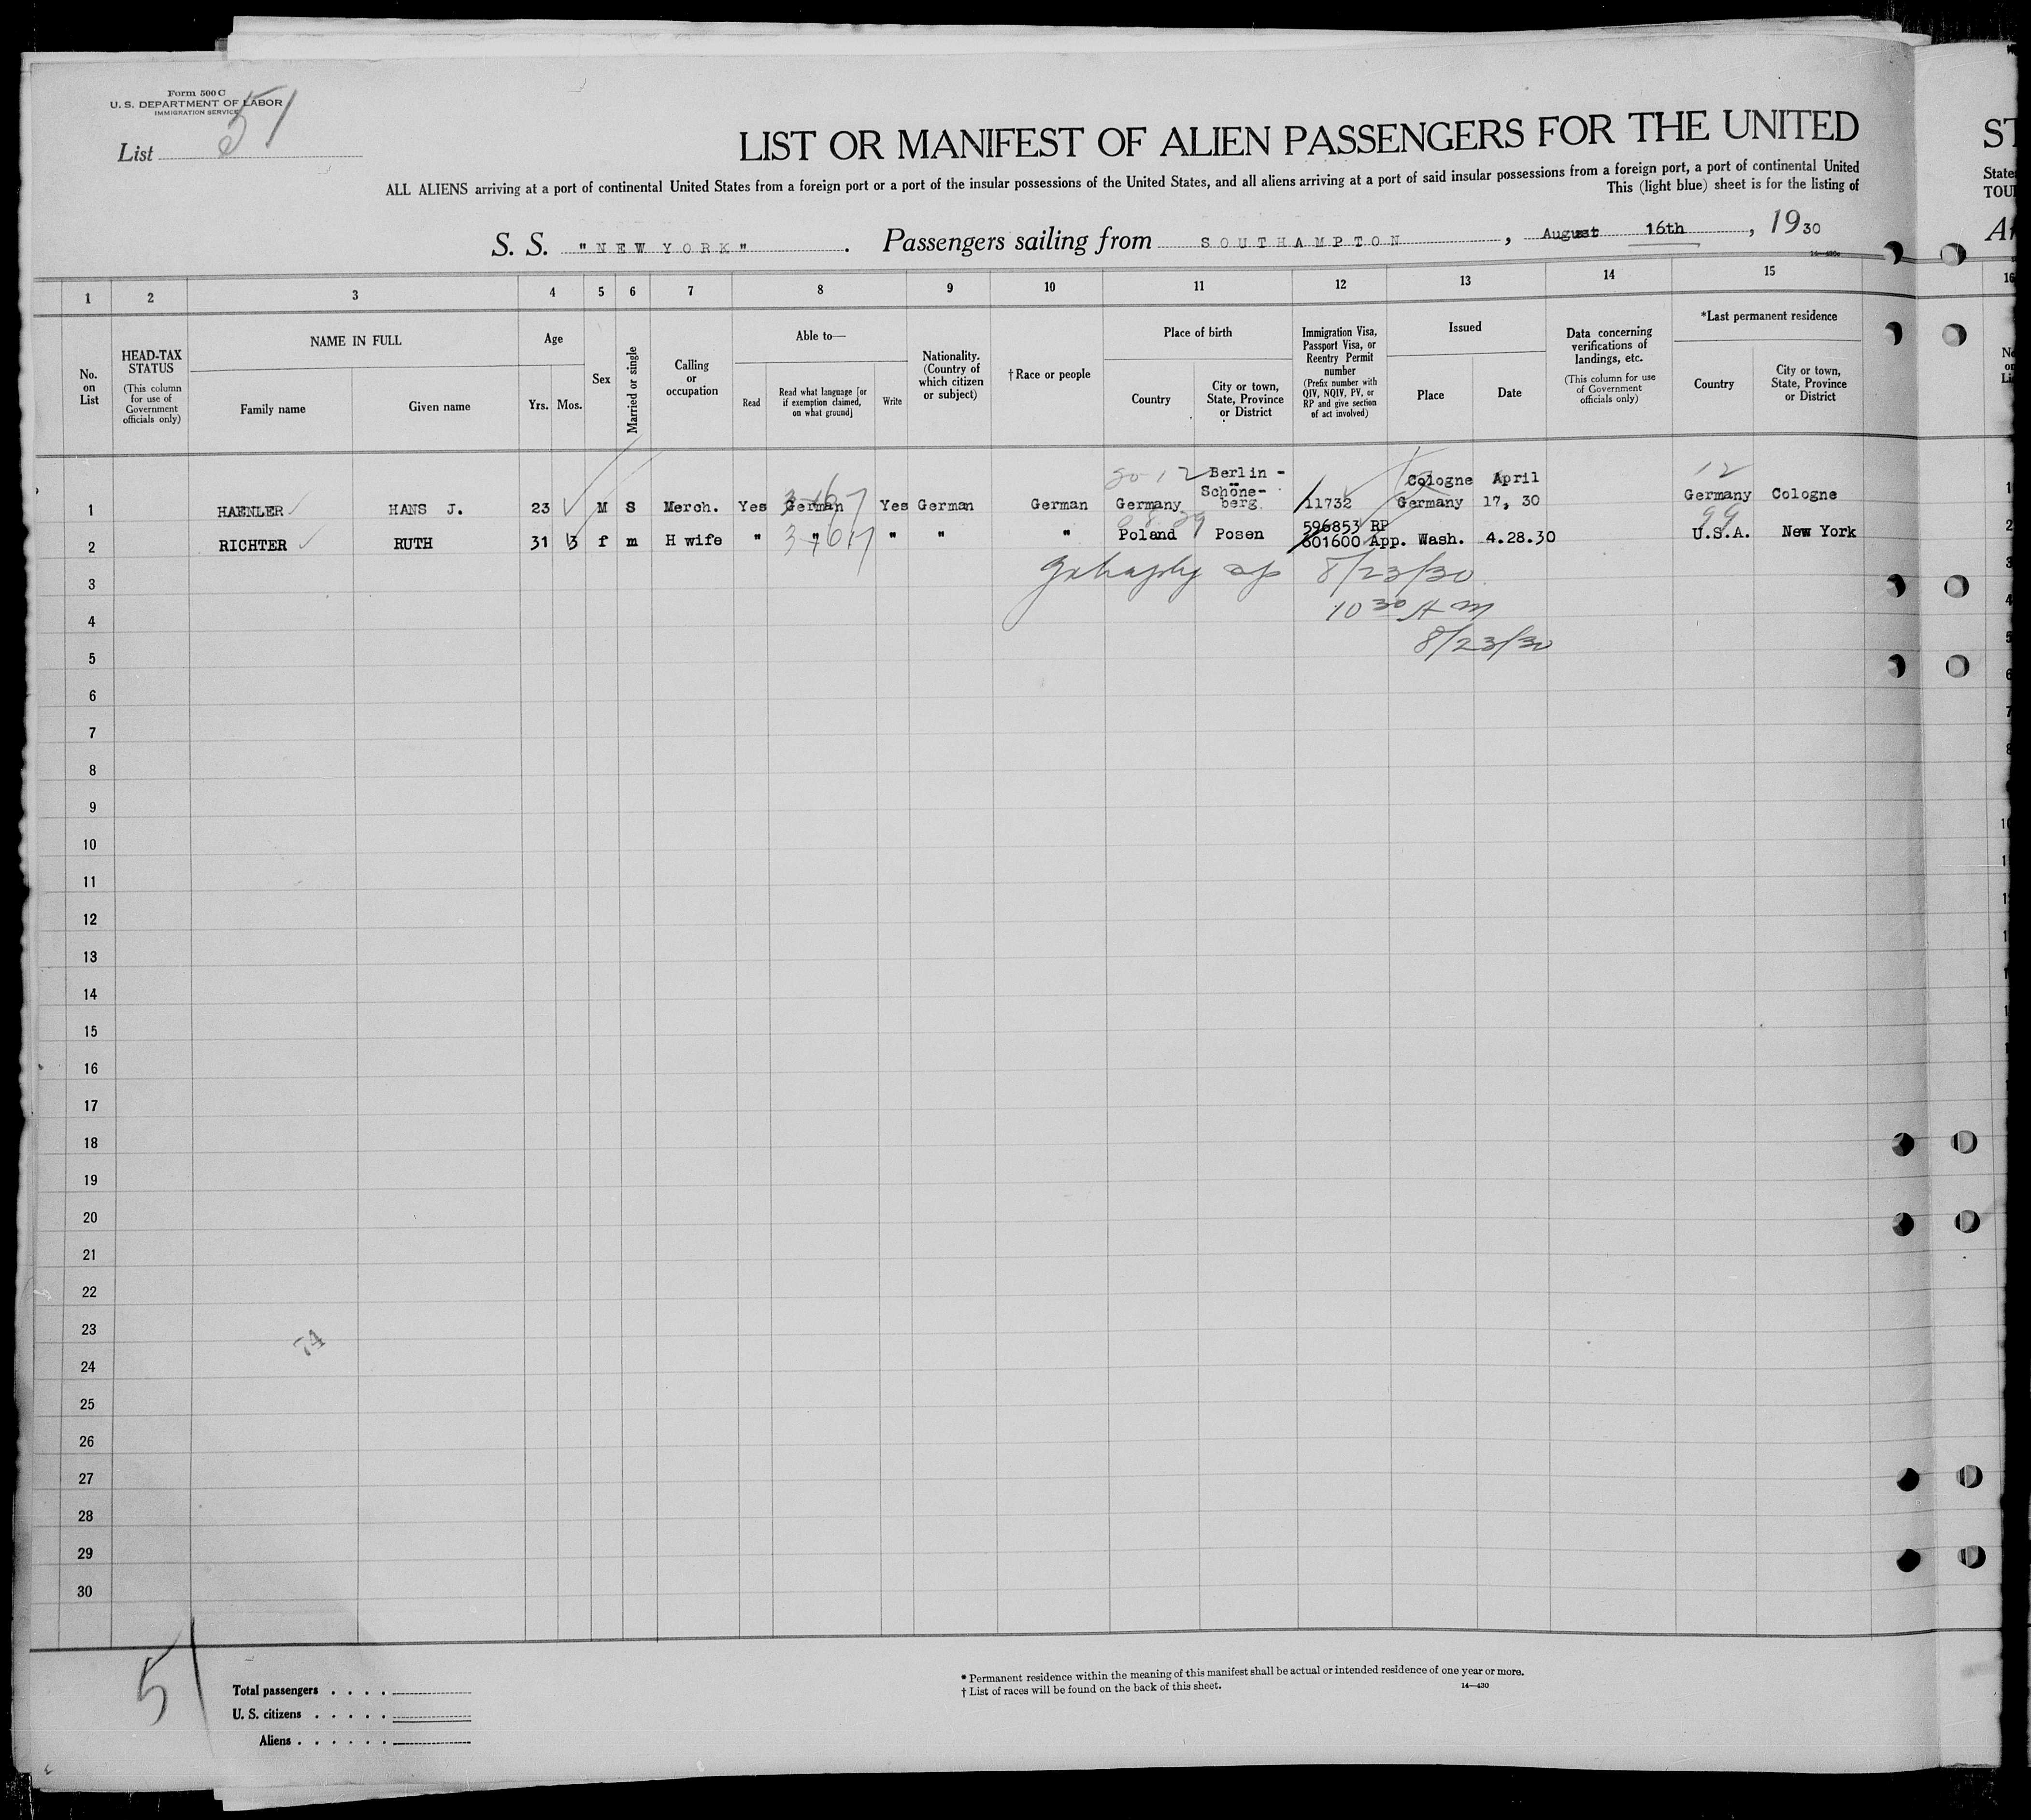 Form 500 C
U. S. DEPARTMENT OF LABOR
IMMIGRATION SERVICE
List 51
LIST OR MANIFEST OF ALIEN PASSENGERS FOR THE UNITED
ST
ALL ALIENS arriving at a port of continental United States from a foreign port or a port of the insular possessions of the United States, and all aliens arriving at a port of said insular possessions from a foreign port, a port of continental United
State
This (light blue) sheet is for the listing of
TOU
S. S. "NEW YORK". Passengers sailing from SOUTHAMPTON, August 16th, 1930
1 2 3 4 5 6 7 8 9 10 11 12 13 14 15 16
No. on List
HEAD-TAX STATUS (This column for use of Government officials only)
NAME IN FULL
Family name Given name
Age
Yrs. Mos.
Sex
Married or single
Calling or occupation
Able to—
Read
Read what language [or if exemption claimed, on what ground]
Write
Nationality. (Country of which citizen or subject)
†Race or people
Place of birth
Country
City or town, State, Province or District
Immigration Visa, Passport Visa, or Reentry Permit number (Prefix number with QIV, NQIV, PV, or RP and give section of act involved)
Issued
Place Date
Data concerning verifications of landings, etc. (This column for use of Government officials only)
*Last permanent residence
Country
City or town, State, Province or District
1 HAENLER HANS J. 23 M S Merch. Yes German Yes German German Germany Berlin - Schöne- berg. 11732 Cologne Germany April 17, 30 12 Germany Cologne
2 RICHTER RUTH 31 3 f m H wife " " " " " Poland Posen 596853 RP 601600 App. Wash. 4.28.30 99 U.S.A. New York
8/23/30
3
10 30 A M
4
8/23/30
5
6
7
8
9
10
11
12
13
14
15
16
17
18
19
20
21
22
23
74
24
25
26
27
28
29
30
51
Total passengers
U. S. citizens
Aliens
* Permanent residence within the meaning of this manifest shall be actual or intended residence of one year or more.
† List of races will be found on the back of this sheet.
14—430